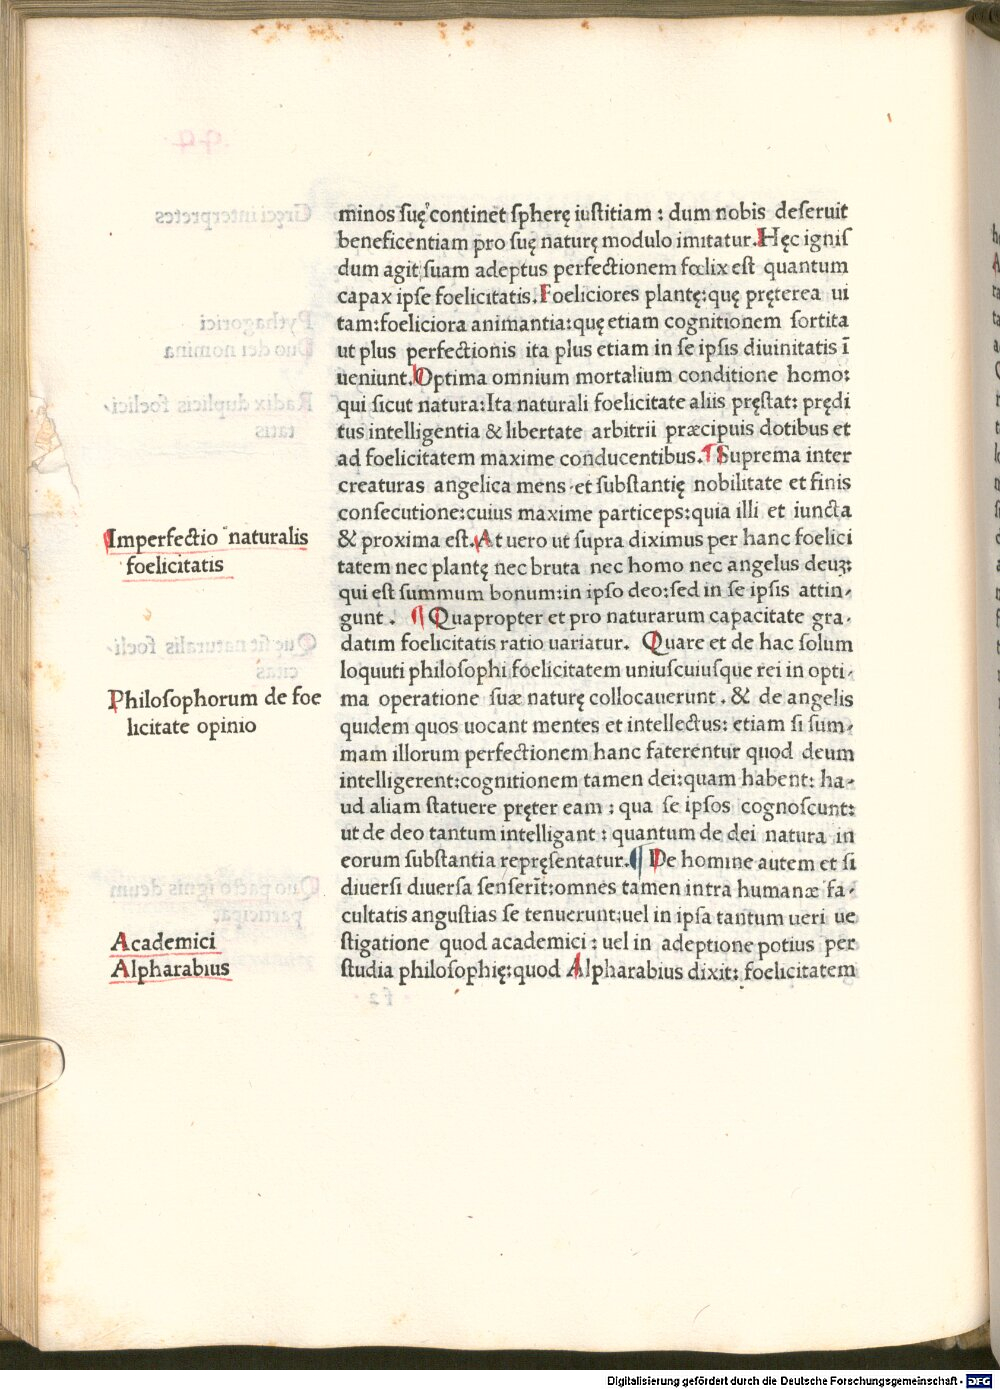 minos ſuę continet ſpherę iuſtitiam : dum nobis deſeruit
beneficentiam pro ſuę naturę modulo imitatur. Hęc igniſ
dum agit ſuam adeptus perfectionem fœlix eſt quantum
capax ipſe foelicitatis. Foeliciores plantę: quę pręterea ui
tam: foeliciora animantia: quę etiam cognitionem ſortita
ut plus perfectionis ita plus etiam in ſe ipſis diuinitatis ī
ueniunt. Optima omnium mortalium conditione homo:
qui ſicut natura: Ita naturali foelicitate aliis pręſtat: prędi
tus intelligentia & libertate arbitrii præcipuis dotibus et
ad foelicitatem maxime conducentibus. ¶ Suprema inter
creaturas angelica mens et ſubſtantię nobilitate et finis
Imperfectio naturalis
foelicitatis
conſecutione: cuius maxime particeps: quia illi et iuncta
& proxima eſt. At uero ut ſupra diximus per hanc foelici
tatem nec plantę nec bruta nec homo nec angelus deuꝫ:
qui eſt ſummum bonum: in ipſo deo: ſed in ſe ipſis attin-
gunt . ¶ Quapropter et pro naturarum capacitate gra-
datim foelicitatis ratio uariatur. Quare et de hac ſolum
loquuti philoſophi foelicitatem uniuſcuiuſque rei in opti-
Philoſophorum de foe
licitate opinio
ma operatione ſuæ naturę collocauerunt . & de angelis
quidem quos uocant mentes et intellectus: etiam ſi ſum-
mam illorum perfectionem hanc faterentur quod deum
intelligerent: cognitionem tamen dei: quam habent: ha-
ud aliam ſtatuere pręter eam : qua ſe ipſos cognoſcunt:
ut de deo tantum intelligant : quantum de dei natura in
eorum ſubſtantia repręſentatur. ¶ De homine autem et ſi
diuerſi diuerſa ſenſerīt: omnes tamen intra humanæ fa-
cultatis anguſtias ſe tenuerunt: uel in ipſa tantum ueri ue
Academici
Alpharabius
ſtigatione quod academici : uel in adeptione potius per
ſtudia philoſophię: quod Alpharabius dixit: foelicitatem
Digitalisierung gefördert durch die Deutsche Forschungsgemeinschaft - DFG